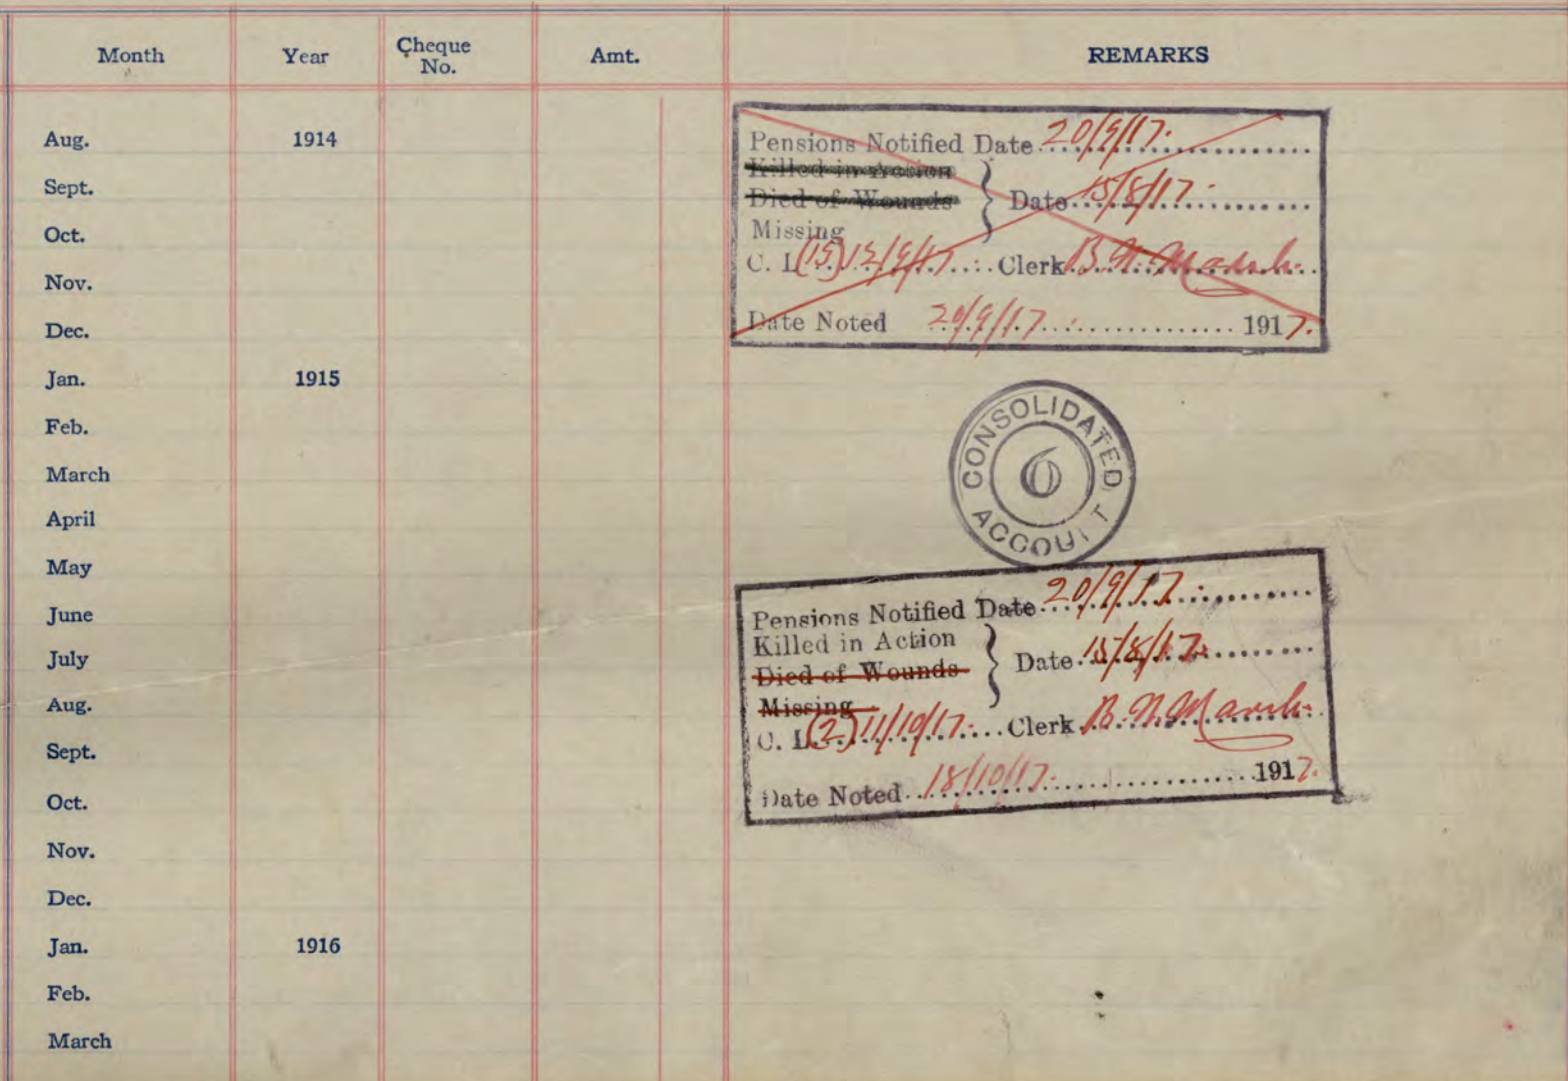 Month Year Cheque No. Amt. REMARKS
Aug. 1914
Sept.
Oct.
Nov.
Dec.
Jan. 1915
Feb.
March
April
May
June
July
Aug.
Sept.
Oct.
Nov.
Dec.
Jan. 1916
Feb.
March
Pensions Notified Date 20/9/17.
Killed in Action
Died of Wounds } Date 15/8/17.
Missing
C. L. (15) 12/9/17 Clerk B. N. Marsh.
Date Noted 20/9/17. 1917.
CONSOLIDATED
6
ACCOUNT
Pensions Notified Date 20/9/17.
Killed in Action
Died of Wounds } Date 15/8/17.
Missing
C. L. (2) 11/10/17. Clerk B. N. Marsh.
Date Noted 18/10/17. 1917.